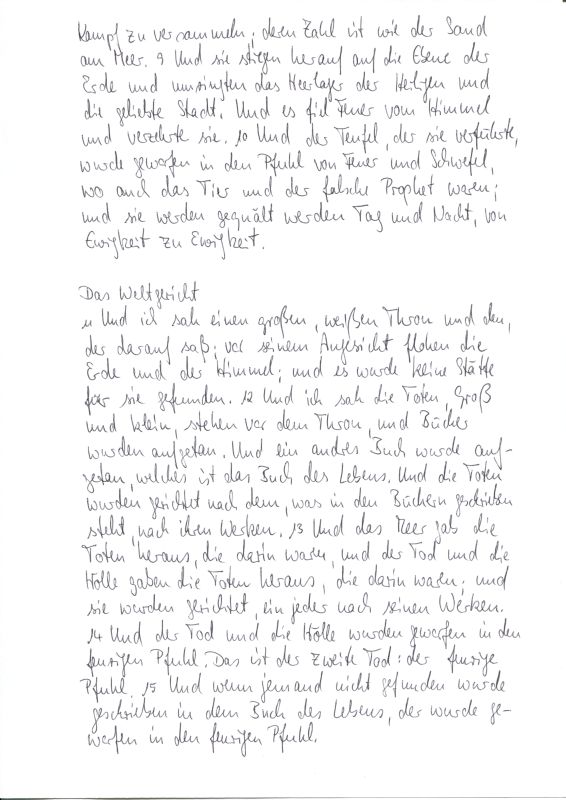 Kampf zu versammeln; deren Zahl ist wie der Sand
am Meer. 9 Und sie stiegen herauf auf die Ebene der
Erde und umringten das Heerlager der Heiligen und
die geliebte Stadt. Und es fiel Feuer vom Himmel
und verzehrte sie. 10 Und der Teufel, der sie verführte,
wurde geworfen in den Pfuhl von Feuer und Schwefel,
wo auch das Tier und der falsche Prophet waren;
und sie werden gequält werden Tag und Nacht, von
Ewigkeit zu Ewigkeit.
Das Weltgericht
11 Und ich sah einen großen, weißen Thron und den,
der darauf saß; vor seinem Angesicht flohen die
Erde und der Himmel; und es wurde keine Stätte
für sie gefunden. 12 Und ich sah die Toten, Groß
und klein, stehen vor dem Thron, und Bücher
wurden aufgetan. Und ein andres Buch wurde auf-
getan, welches ist das Buch des Lebens. Und die Toten
wurden gerichtet nach dem, was in den Büchern geschrieben
steht, nach ihren Werken. 13 Und das Meer gab die
Toten heraus, die darin waren, und der Tod und die
Hölle gaben die Toten heraus, die darin waren; und
sie wurden gerichtet, ein jeder nach seinen Werken.
14 Und der Tod und die Hölle wurden geworfen in den
feurigen Pfuhl. Das ist der zweite Tod: der feurige
Pfuhl. 15 Und wenn jemand nicht gefunden wurde
geschrieben in dem Buch des Lebens, der wurde ge-
worfen in den feurigen Pfuhl.